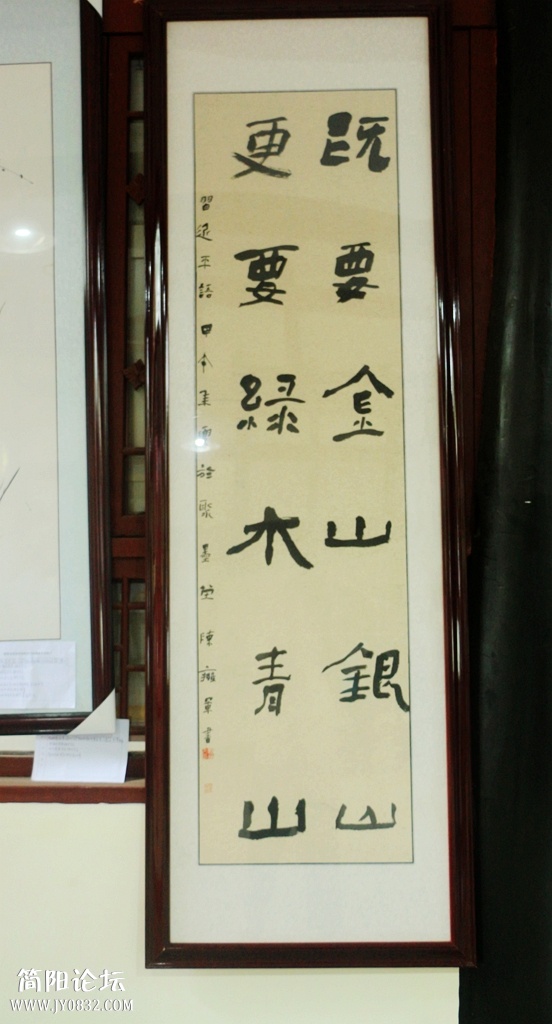 既要金山銀山
更要綠木青山
習近平語甲午雨於聚墨堂陳景書
简阳论坛
WWW.JY0832.COM